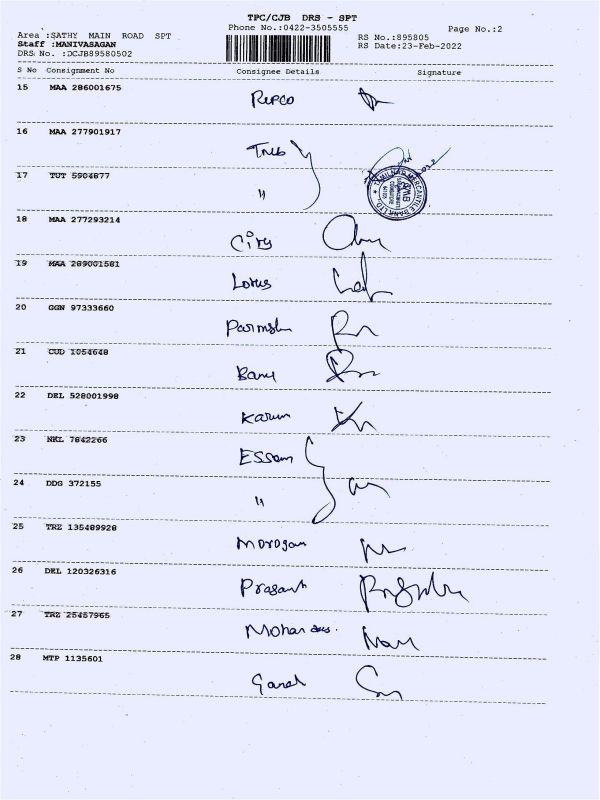 TPC/CJB DRS - SPT
Phone No.:0422-3505555
Page No.:2
Area :SATHY MAIN ROAD SPT
RS No.:895805
Staff :MANIVASAGAN
RS Date:23-Feb-2022
DRS No. :DCJB89580502
S No Consignment No Consignee Details Signature
15 MAA 286001675 Repco
16 MAA 277901917 Tmb
17 TUT 5904877 "
TAMILNAD MERCANTILE BANK LTD.
18 MAA 277293214 City
19 MAA 289001581 Lotus
20 GGN 97333660
21 CUD 1054648 Banu
22 DEL 528001998 Karun
23 NKL 7842266 Essam
24 DDG 372155 "
25 TRZ 135489928 Morogan
26 DEL 120326316 Prasanth
27 TRZ 25457965
28 MTP 1135601 Ganesh